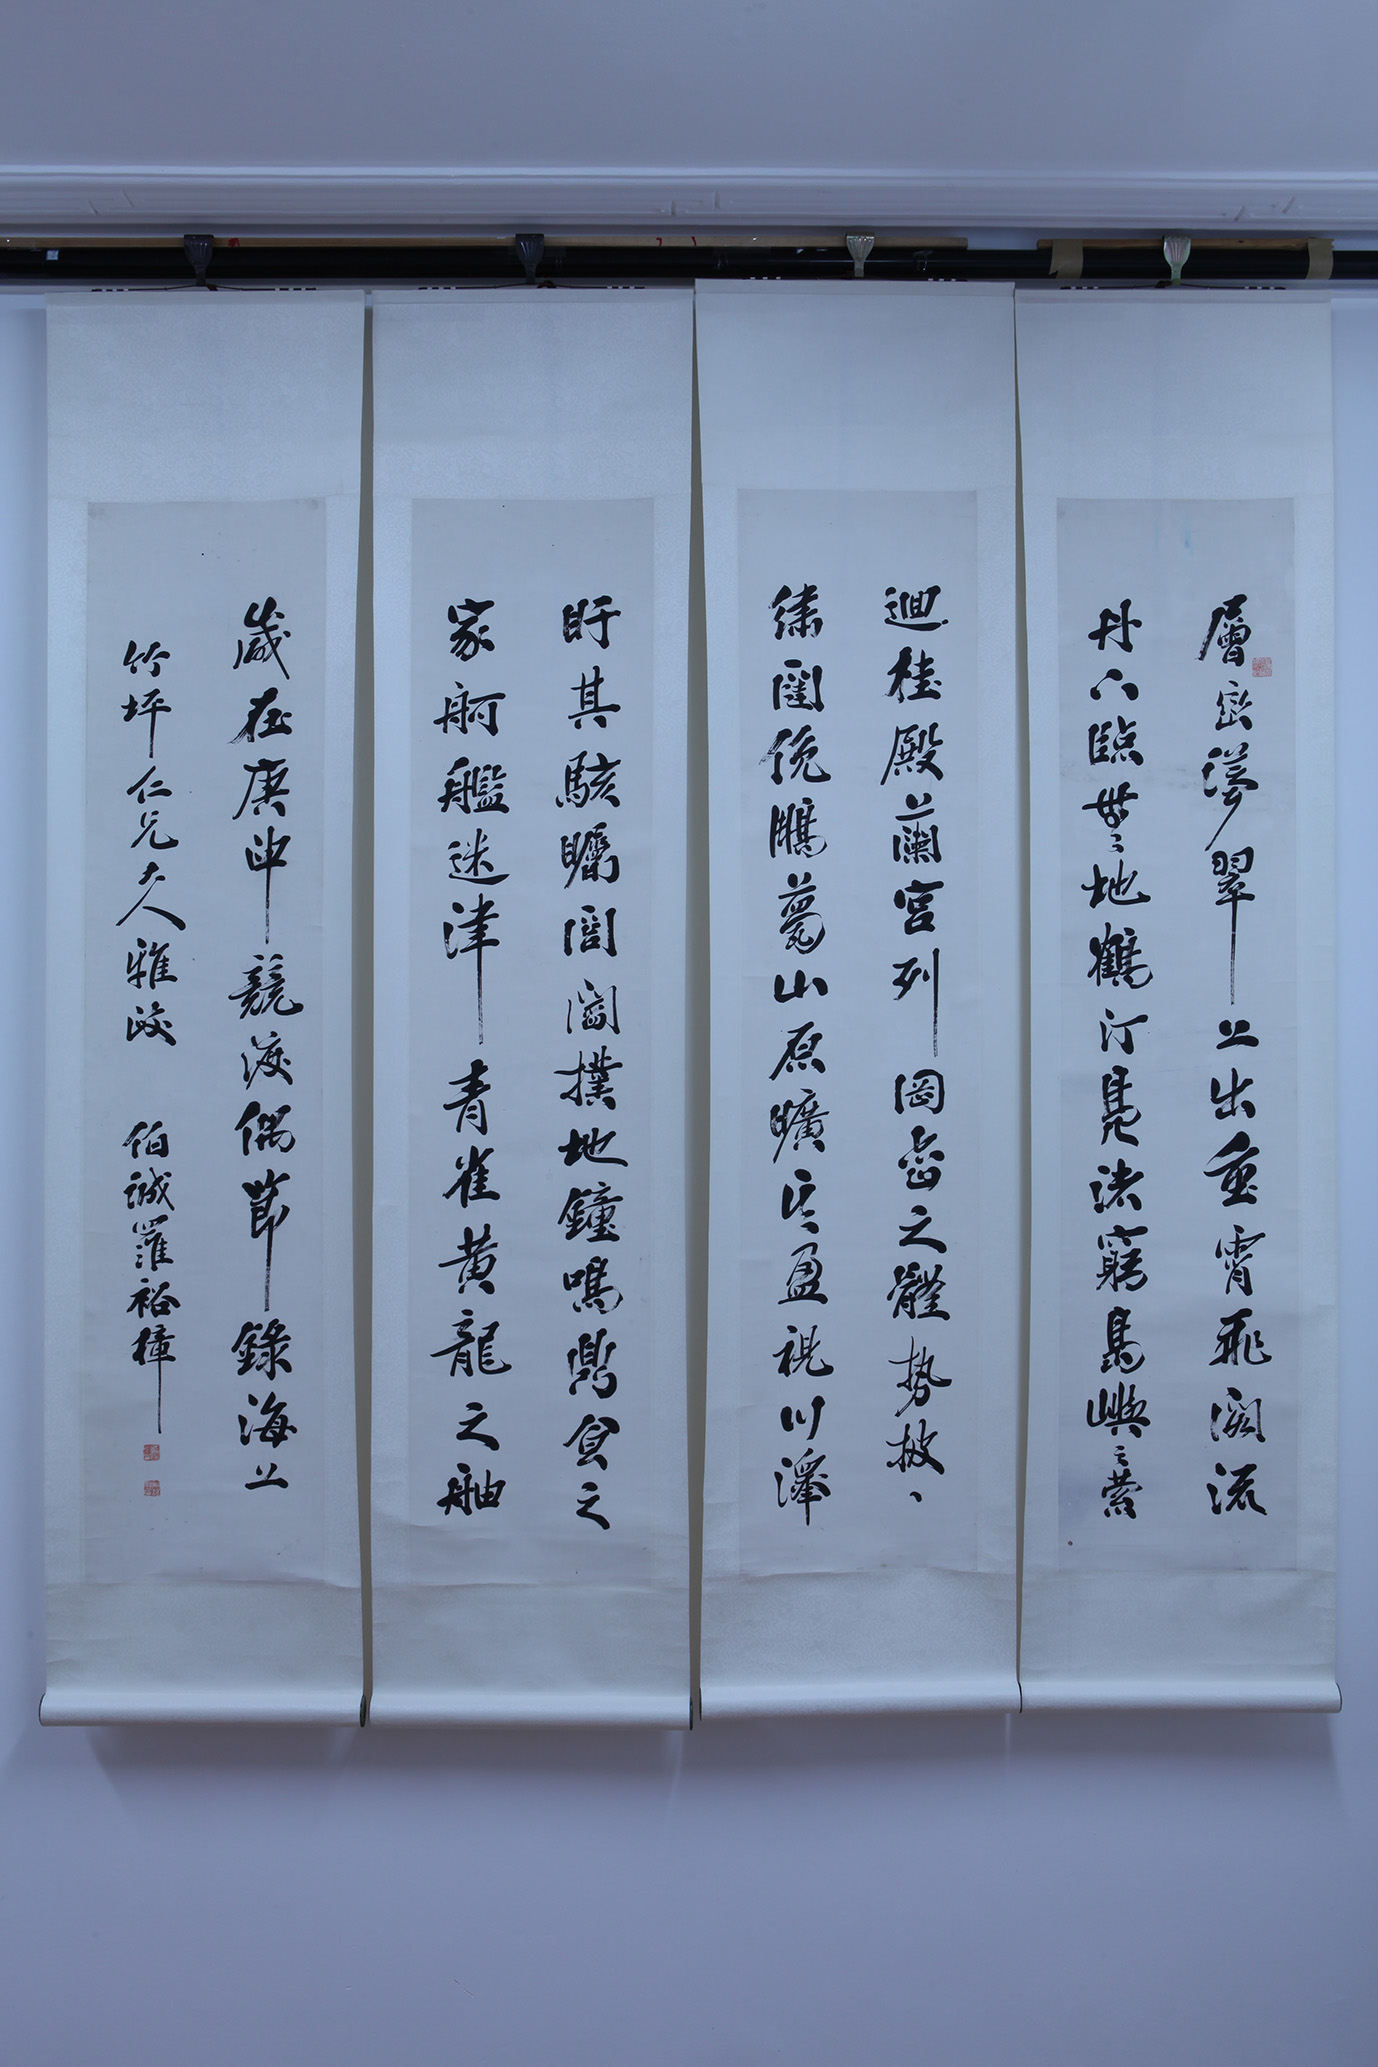 層巒聳翠上出重霄飛閣流
丹下臨無地鶴汀鳧渚窮島嶼之縈
迴桂殿蘭宮列岡巒之體勢披
繡闥俛鵰甍山原曠其盈視川澤
盱其駭矚閭閻撲地鐘鳴鼎食之
家舸艦迷津青雀黃龍之舳
歲在庚申競渡偶節錄海上
竹坪仁兄大人雅政 伯誠羅裕樟